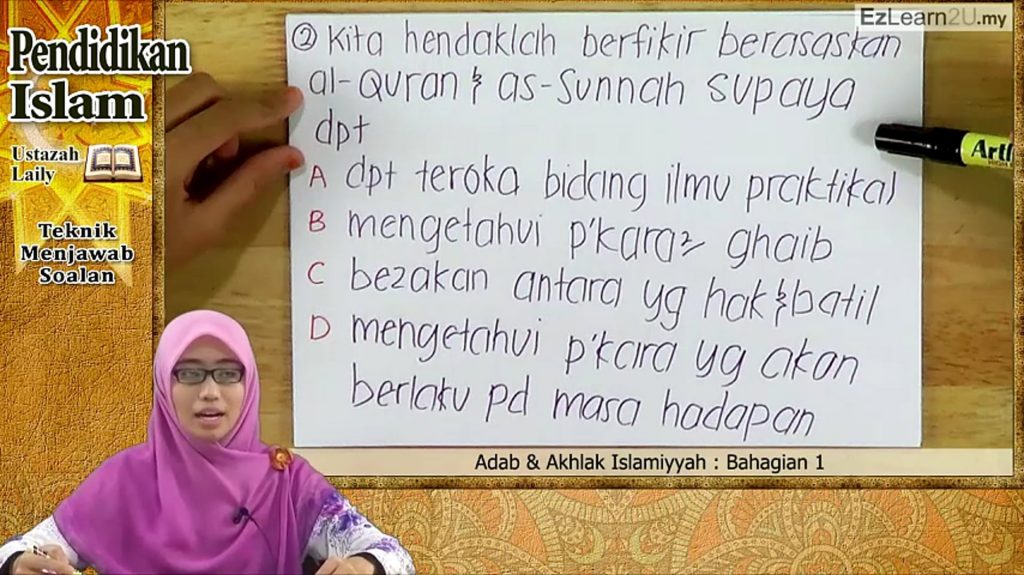 EzLearn2U.my
Pendidikan
Islam
Ustazah
Laily
Teknik
Menjawab
Soalan
② Kita hendaklah berfikir berasaskan
al-Quran & as-Sunnah supaya
dpt
A dpt teroka bidang ilmu praktikal
B mengetahui p'kara2 ghaib
C bezakan antara yg hak & batil
D mengetahui p'kara yg akan
berlaku pd masa hadapan
Adab & Akhlak Islamiyyah : Bahagian 1